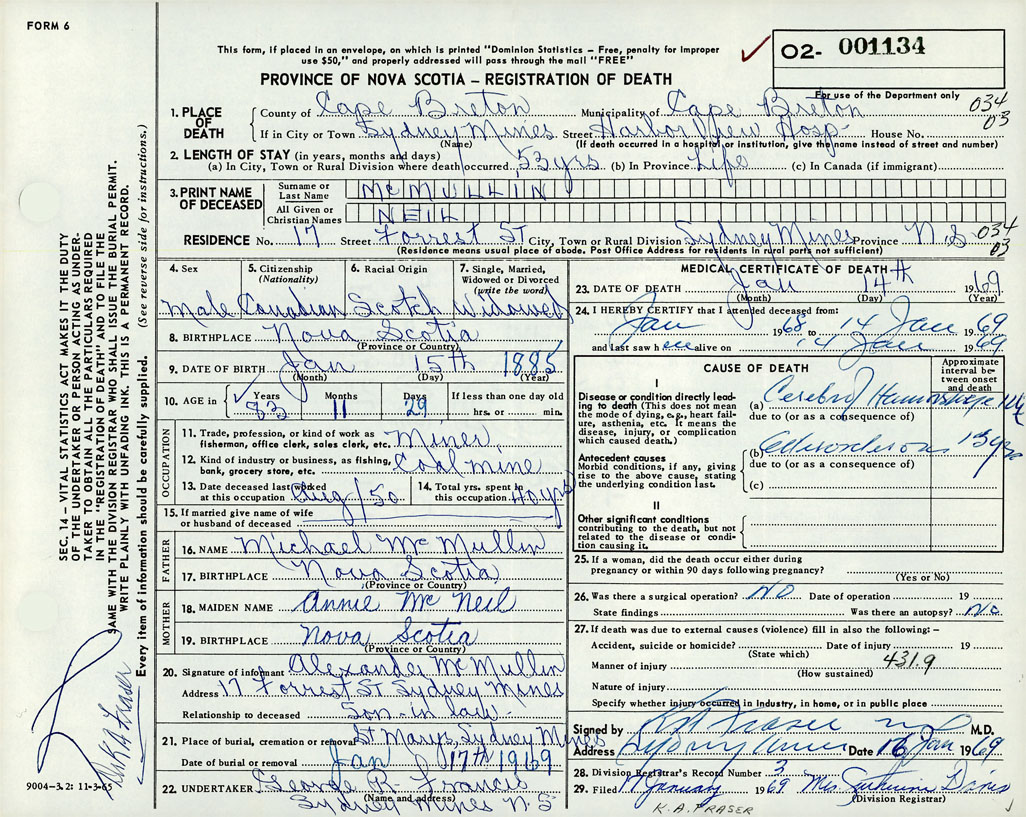 FORM 6
This form, if placed in an envelope, on which is printed "Dominion Statistics – Free, penalty for improper
use $50," and properly addressed will pass through the mail "FREE"
O2- 001134
PROVINCE OF NOVA SCOTIA – REGISTRATION OF DEATH
For use of the Department only
034
03
1. PLACE OF DEATH
County of Cape Breton Municipality of Cape Breton
If in City or Town Sydney Mines Street Harbor View Hosp. House No.
(Name) (If death occurred in a hospital or institution, give the name instead of street and number)
2. LENGTH OF STAY (in years, months and days)
(a) In City, Town or Rural Division where death occurred 53 yrs (b) In Province Life (c) In Canada (if immigrant)
3. PRINT NAME OF DECEASED
Surname or Last Name McMULLIN
All Given or Christian Names NEIL
RESIDENCE No. 17 Street Forrest St City, Town or Rural Division Sydney Mines Province N S
034
03
(Residence means usual place of abode. Post Office Address for residents in rural parts not sufficient)
4. Sex Male
5. Citizenship (Nationality) Canadian
6. Racial Origin Scotch
7. Single, Married, Widowed or Divorced (write the word) Widowed
8. BIRTHPLACE Nova Scotia
(Province or Country)
9. DATE OF BIRTH Jan 15th 1885
(Month) (Day) (Year)
10. AGE in Years 83 Months 11 Days 29 If less than one day old
hrs. or min.
OCCUPATION
11. Trade, profession, or kind of work as
fisherman, office clerk, sales clerk, etc. Miner
12. Kind of industry or business, as fishing,
bank, grocery store, etc. Coal mine
13. Date deceased last worked
at this occupation Aug/50
14. Total yrs. spent in
this occupation 40 yrs
15. If married give name of wife
or husband of deceased
FATHER
16. NAME Michael McMullin
17. BIRTHPLACE Nova Scotia
(Province or Country)
MOTHER
18. MAIDEN NAME Annie McNeil
19. BIRTHPLACE Nova Scotia
(Province or Country)
20. Signature of informant Alexander McMullin
Address 17 Forrest St Sydney Mines
Relationship to deceased Son-in law
21. Place of burial, cremation or removal St Marys, Sydney Mines
Date of burial or removal Jan 17th 1969
22. UNDERTAKER George R. Francis
(Name and address)
Sydney Mines N. S
MEDICAL CERTIFICATE OF DEATH
23. DATE OF DEATH Jan 14th 1969
(Month) (Day) (Year)
24. I HEREBY CERTIFY that I attended deceased from:
Jan 1968 to 14 Jan 1969
and last saw him alive on 14 Jan 1969
CAUSE OF DEATH
Approximate interval between onset and death
I
Disease or condition directly leading to death (This does not mean the mode of dying, e.g., heart failure, asthenia, etc. It means the disease, injury, or complication which caused death.)
(a) Cerebral Hemorrhage
due to (or as a consequence of)
Antecedent causes
Morbid conditions, if any, giving rise to the above cause, stating the underlying condition last.
(b)
due to (or as a consequence of)
(c)
II
Other significant conditions
contributing to the death, but not related to the disease or condition causing it.
25. If a woman, did the death occur either during
pregnancy or within 90 days following pregnancy?
(Yes or No)
26. Was there a surgical operation? NO Date of operation 19
State findings Was there an autopsy? No
27. If death was due to external causes (violence) fill in also the following: –
Accident, suicide or homicide? Date of injury 19
(State which)
431.9
Manner of injury
(How sustained)
Nature of injury
Specify whether injury occurred in industry, in home, or in public place
Signed by K A Fraser M.D.
Address Sydney Mines Date 16 Jan 1969
28. Division Registrar's Record Number 3
29. Filed 17 January 1969 Mrs. Davis
(Division Registrar)
K.A. FRASER
SEC. 14 – VITAL STATISTICS ACT MAKES IT THE DUTY
OF THE UNDERTAKER OR PERSON ACTING AS UNDER-
TAKER TO OBTAIN ALL THE PARTICULARS REQUIRED
IN THE "REGISTRATION OF DEATH" AND TO FILE THE
SAME WITH THE DIVISION REGISTRAR WHO SHALL ISSUE THE BURIAL PERMIT.
WRITE PLAINLY WITH UNFADING INK. THIS IS A PERMANENT RECORD.
Every item of information should be carefully supplied. (See reverse side for instructions.)
K A Fraser
9004-3.2: 11-3-65